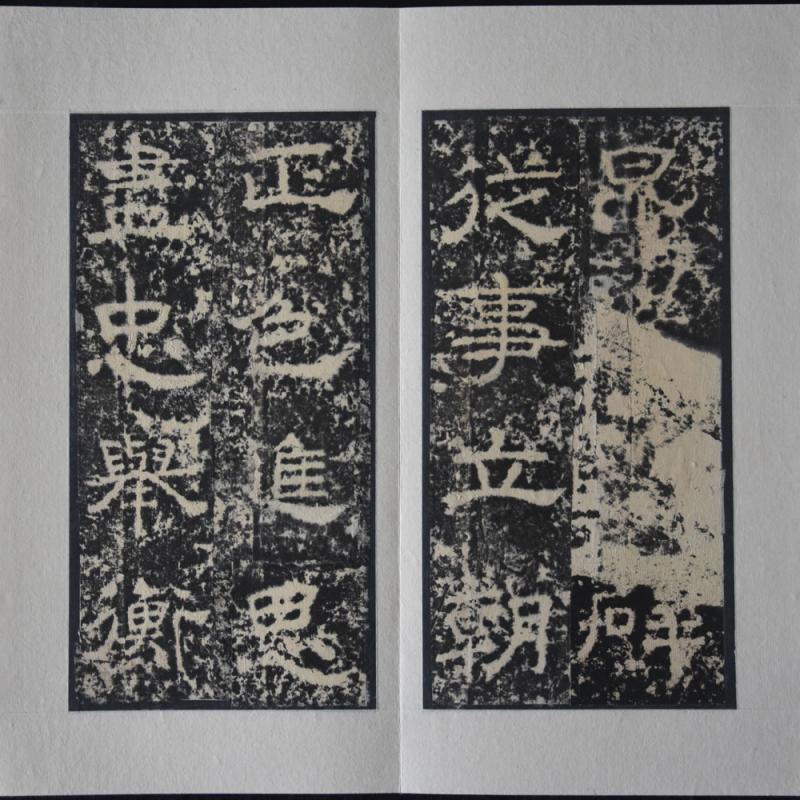 從事立朝
正色進思
盡忠舉衡